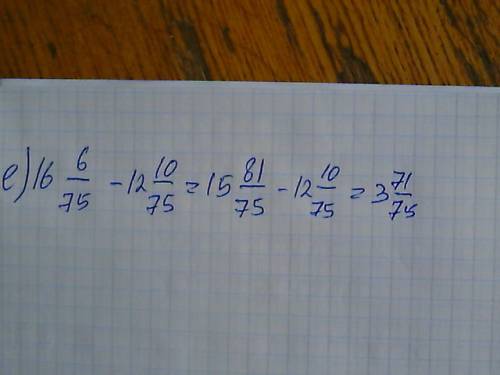 е) 16 6/75 - 12 10/75 = 15 81/75 - 12 10/75 = 3 71/75